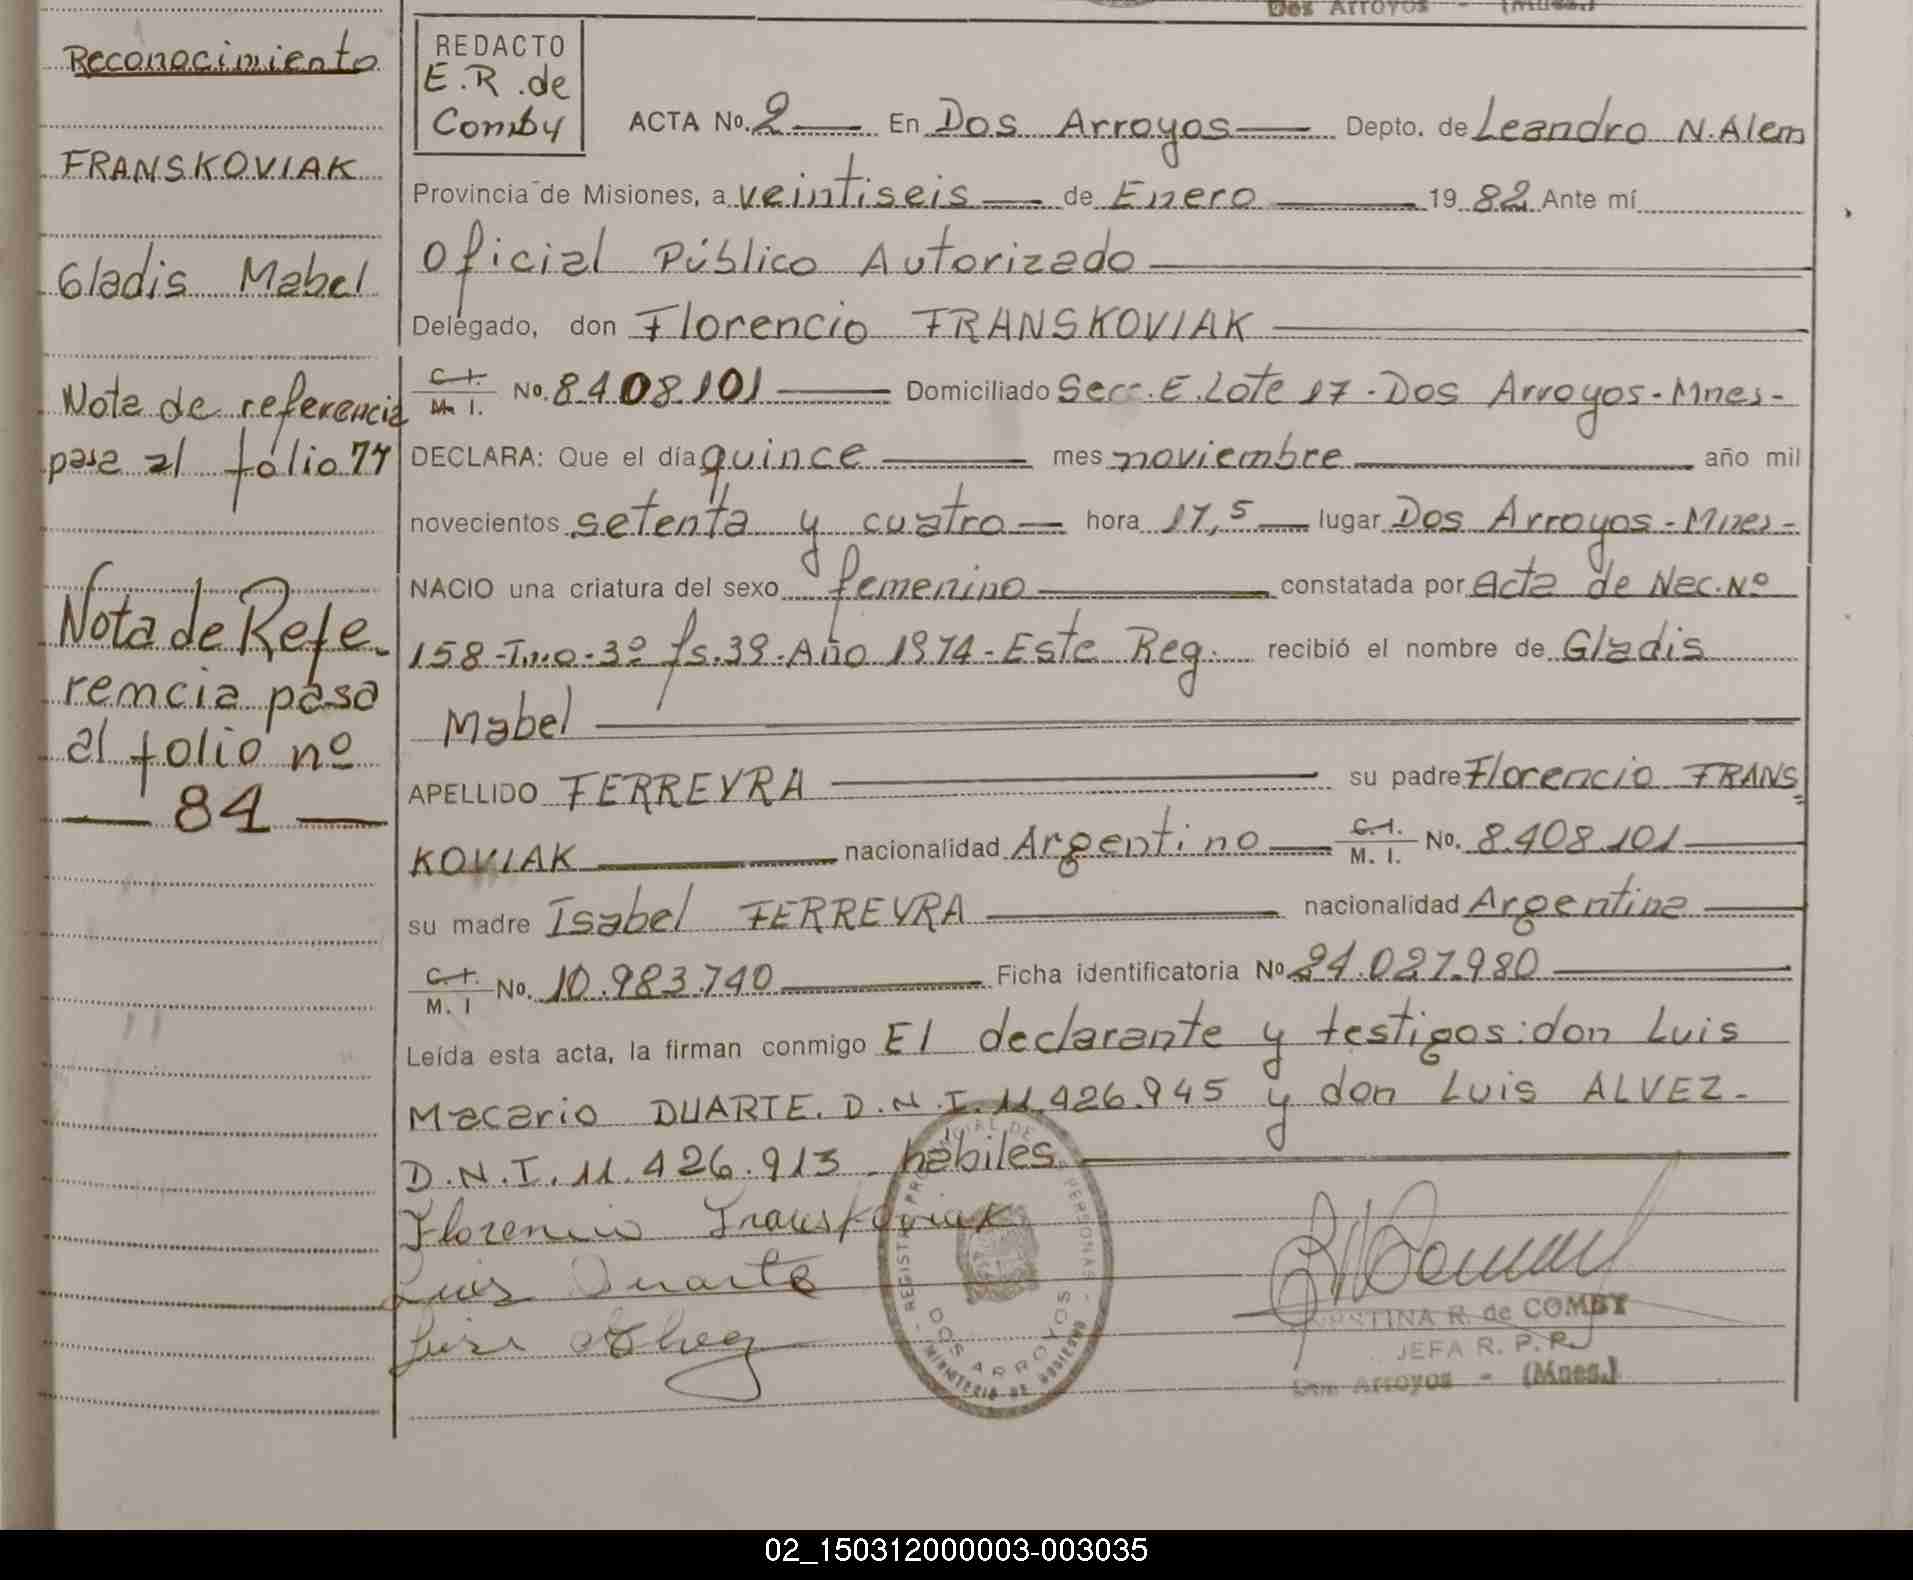 Dos Arroyos - (Mnes.)
Reconocimiento
FRANSKOVIAK
Gladis Mabel
Nota de referencia
pasa al folio 77
Nota de Refe-
rencia pasa
al folio nº
— 84 —
REDACTO
E.R. de
Comby
ACTA No. 2 — En Dos Arroyos — Depto. de Leandro N. Alem
Provincia de Misiones, a veintiseis — de Enero — 19 82 Ante mí
Oficial Público Autorizado
Delegado, don Florencio FRANSKOVIAK
C.I. M. I. No. 8408101 — Domiciliado Secc. E. Lote 17 - Dos Arroyos - Mnes -
DECLARA: Que el día quince — mes noviembre — año mil
novecientos setenta y cuatro — hora 17,5 — lugar Dos Arroyos - Mnes -
NACIO una criatura del sexo femenino — constatada por Acta de Nac. Nº
158 - Tmo - 3º fs. 39 - Año 1974 - Este Reg. recibió el nombre de Gladis
Mabel
APELLIDO FERREYRA — su padre Florencio FRANS=
KOVIAK — nacionalidad Argentino — C.I. M. I. No. 8.408.101
su madre Isabel FERREYRA — nacionalidad Argentina
C.I. M. I No. 10.983.740 — Ficha identificatoria No 24.027.980
Leída esta acta, la firman conmigo El declarante y testigos: don Luis
Macario DUARTE. D.N.I. 11.426.945 y don Luis ALVEZ -
D.N.I. 11.426.913 hábiles
Florencio Franskoviak
Luis Duarte
Luis Alvez
REGISTRO PROVINCIAL DE PERSONAS -
DOS ARROYOS
MINISTERIO DE GOBIERNO
R. de COMBY
JEFA R. P. P.
Dos Arroyos - (Mnes.)
02_150312000003-003035